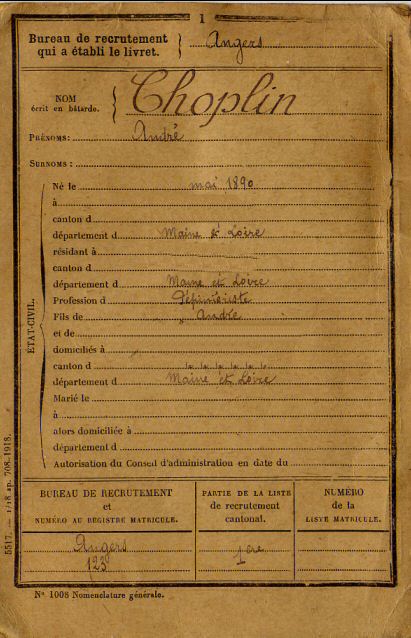 1
Bureau de recrutement
qui a établi le livret. Angers
NOM
écrit en bâtarde. Choplin
PRÉNOMS: André
SURNOMS:
ÉTAT-CIVIL.
Né le mai 1890
à
canton d
département d Maine & Loire
résidant à
canton d
département d Maine et Loire
Profession d Pépiniériste
Fils de André
et de
domiciliés à
canton d
département d Maine et Loire
Marié le
à
alors domiciliée à
département d
Autorisation du Conseil d'administration en date du
BUREAU DE RECRUTEMENT
et
NUMÉRO AU REGISTRE MATRICULE.
PARTIE DE LA LISTE
de recrutement
cantonal.
NUMÉRO
de la
LISTE MATRICULE.
Angers
123
1ère
5517. — 1/18 ap. 708-1918.
N° 1008 Nomenclature générale.